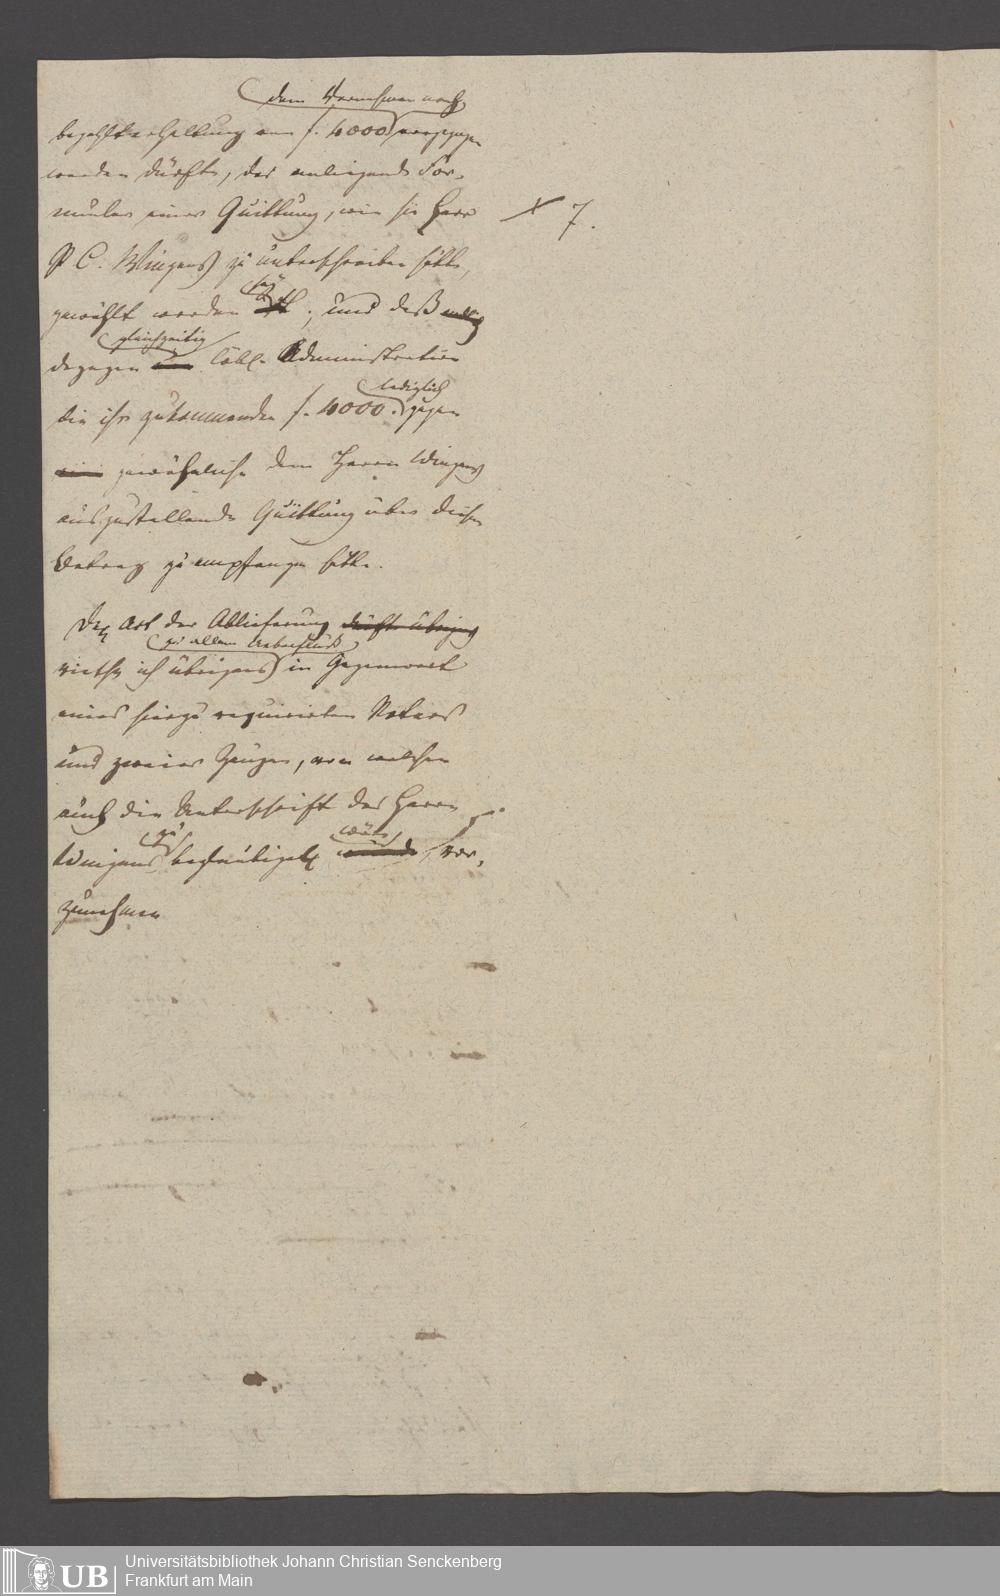 dem Vernehmen nach
bezahlterhaltung von f. 4000 vorgezogen
werden dürfte, das anliegende For-
mular einer Quittung, wie sie Herr
P C. Wingens zu unterschreiben hätte,
gewählt werden sey; und daß
dagegen gleichzeitig löbl. Administration
die ihr zukommenden f. 4000. lediglich gegen
gewöhnliche dem Herrn Wingens
auszustellende Quittung über diesen
Betrag zu empfangen hätte.
Die Art der Ablieferung dürfte übrigens
zu allem Ueberfluß
riethe ich übrigens in Gegenwart
eines hierzu requirirten Notars
und zweier Zeugen, von welchen
auch die Unterschrift des Herrn
Wingens zu beglaubigen wäre, vor-
zunehmen
X 7.
Universitätsbibliothek Johann Christian Senckenberg
Frankfurt am Main
UB